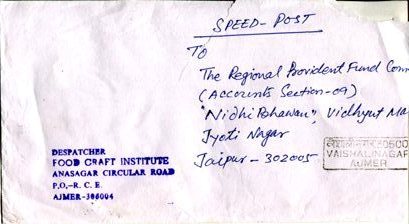 SPEED-POST
To
The Regional Provident Fund Com
(Accounts Section-09)
"Nidhi Bhawan", Vidhyut Ma
Jyoti Nagar
Jaipur - 302005
VAISHALI NAGAR
AJMER
DESPATCHER
FOOD CRAFT INSTITUTE
ANASAGAR CIRCULAR ROAD
P.O.-R. C. E.
AJMER-305004